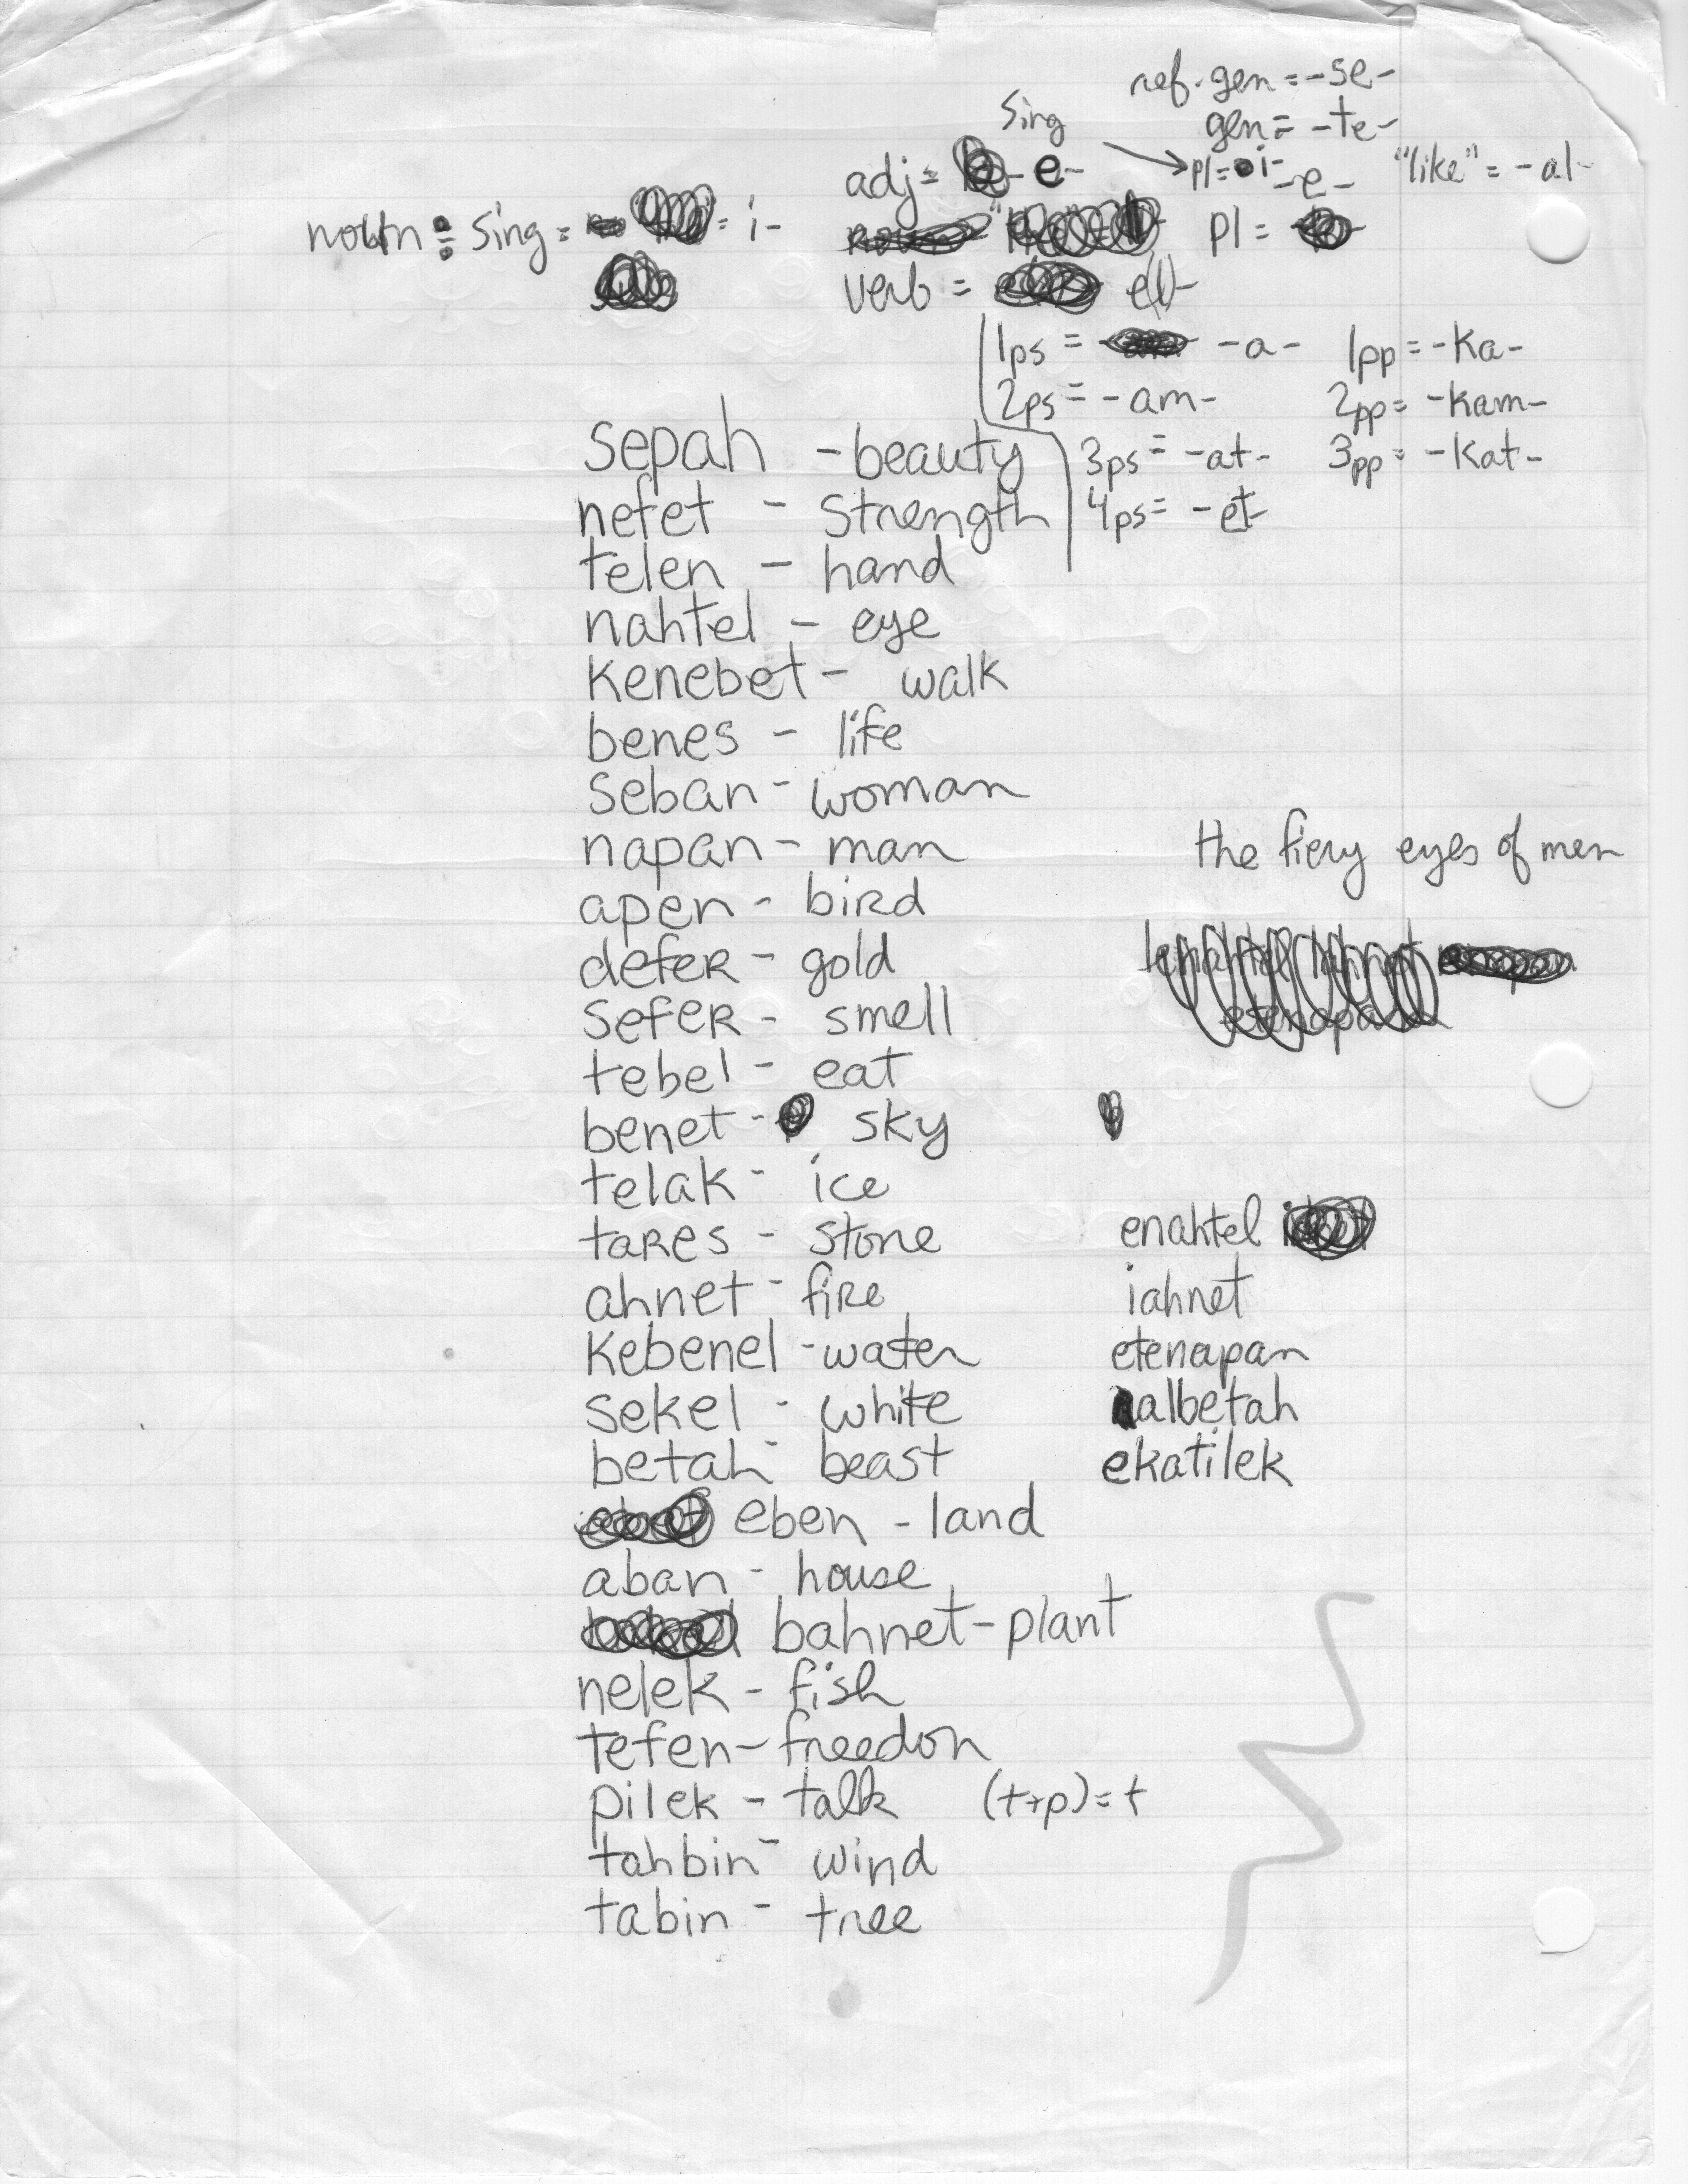 ref. gen = -se-
Sing gen = -te-
adj = -e- pl = i- -e- "like" = -al-
noun : sing = = i- pl =
verb = el-
1ps = -a- 1pp = -ka-
2ps = -am- 2pp = -kam-
3ps = -at- 3pp = -kat-
4ps = -et-
sepah - beauty
nefet - strength
telen - hand
nahtel - eye
kenebet - walk
benes - life
seban - woman
napan - man
the fiery eyes of men
apen - bird
defer - gold
sefer - smell
tebel - eat
benet - sky
telak - ice
tares - stone enahtel
ahnet - fire iahnet
kebenel - water etenapan
sekel - white albetah
betah - beast ekatilek
eben - land
aban - house
bahnet - plant
nelek - fish
tefen - freedon
pilek - talk (t+p)=t
tahbin - wind
tabin - tree